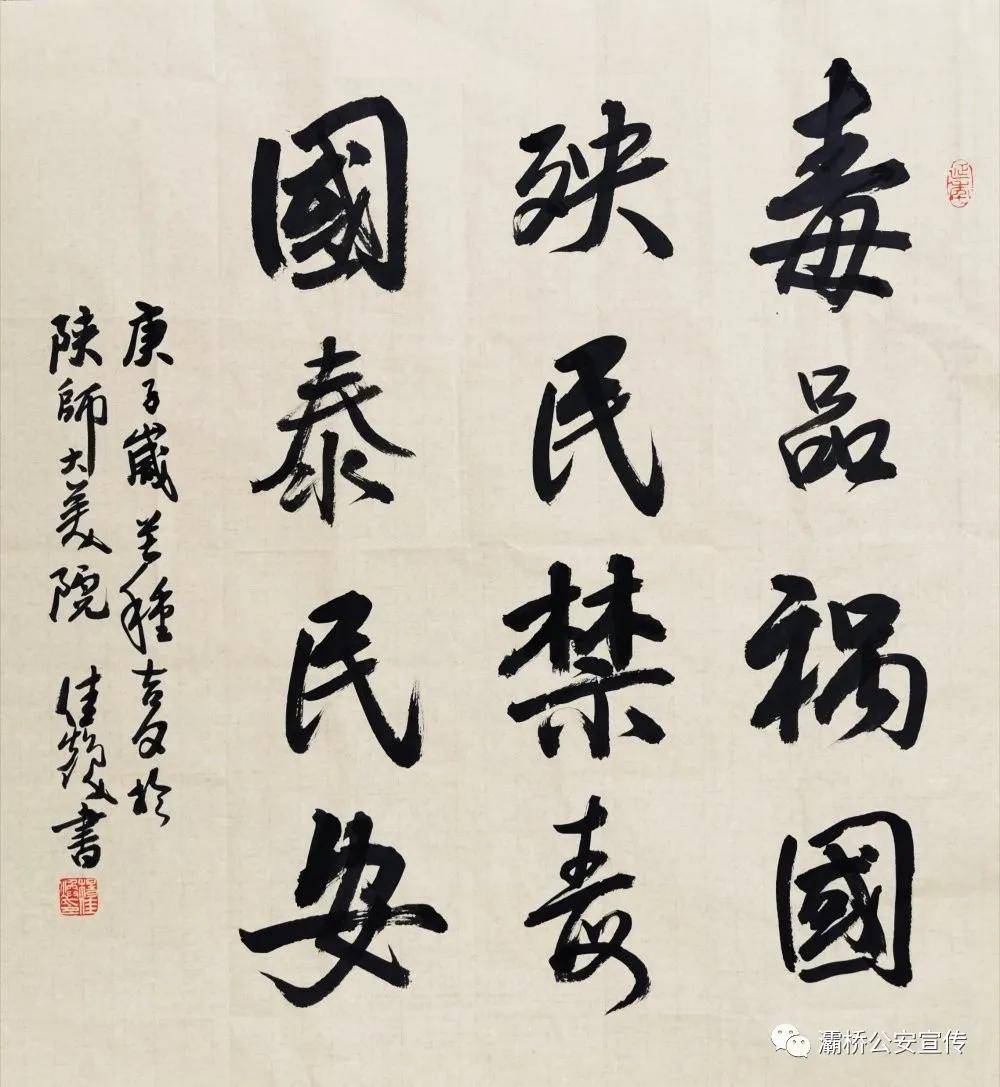 毒品祸國
殃民禁毒
國泰民安
庚子歲芒種於
陕師大美院 佳書
延年
灞桥公安宣传